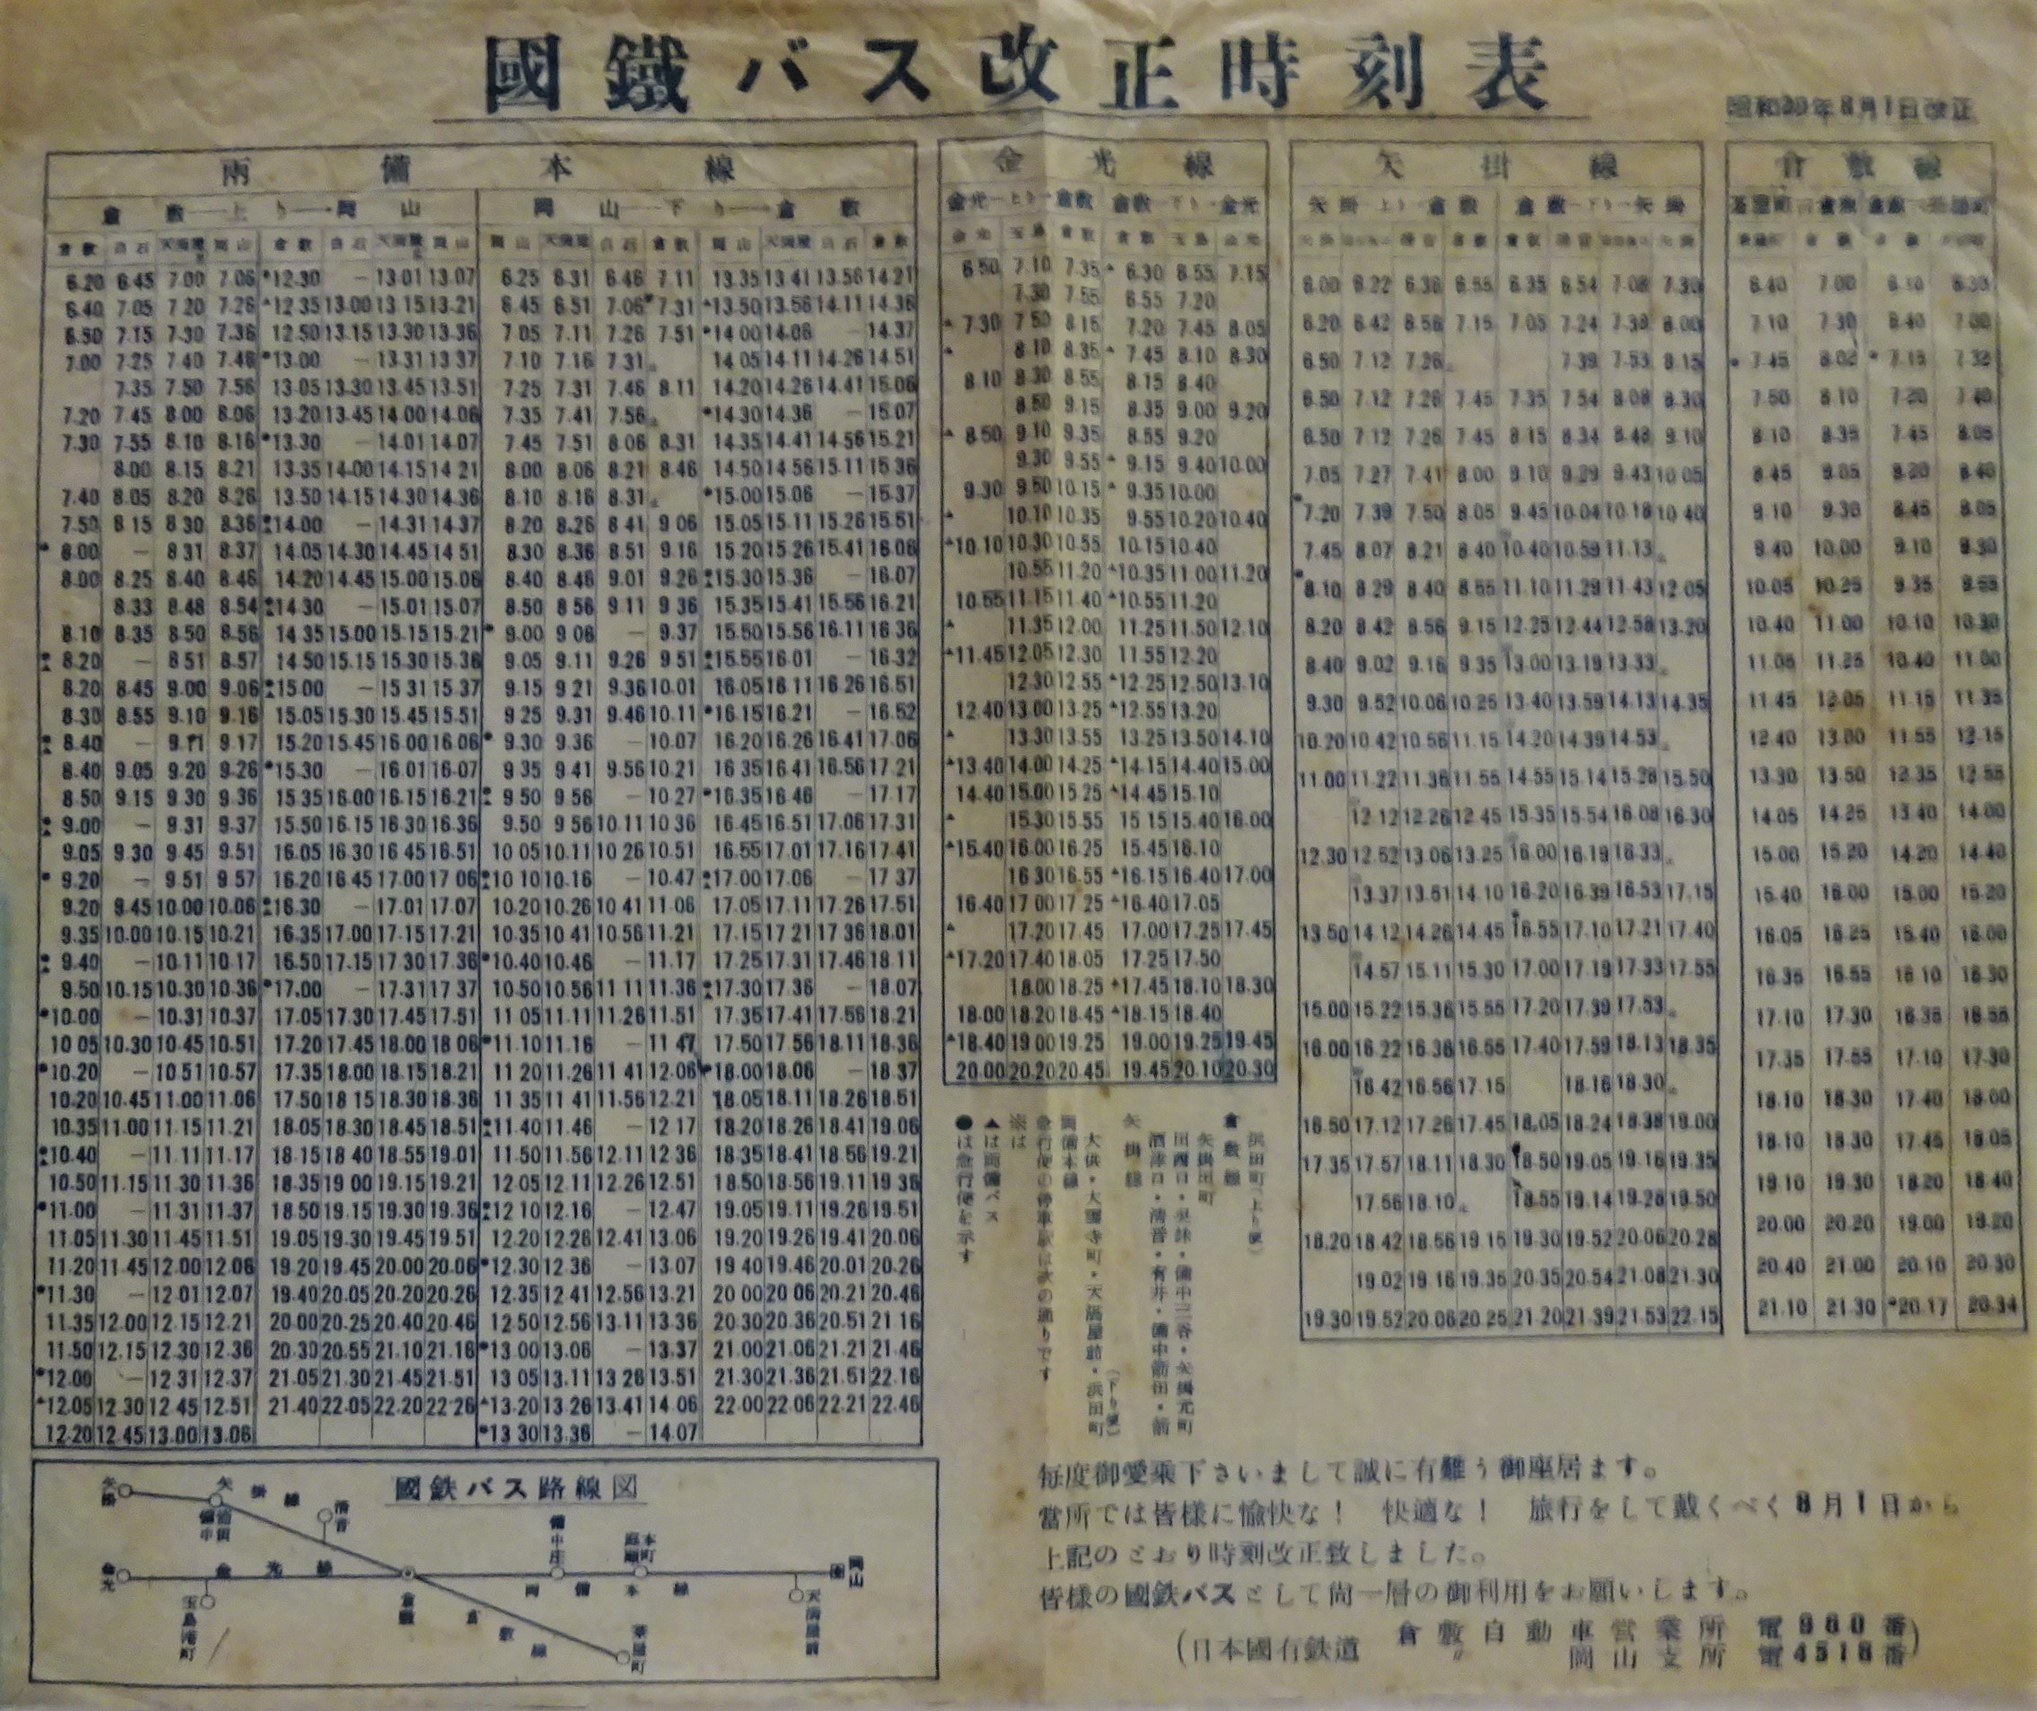 國鐵バス改正時刻表
年8月1日改正
兩備本線
倉敷―上り→岡山
岡山―下り→倉敷
倉敷 白石 岡山 倉敷 白石 岡山
岡山 白石 倉敷 岡山 白石 倉敷
6.20 6.45 7.00 7.06 ●12.30 — 13.01 13.07 6.25 6.31 6.46 7.11 13.35 13.41 13.56 14.21
6.40 7.05 7.20 7.26 ▲12.35 13.00 13.15 13.21 6.45 6.51 7.06 7.31 ▲13.50 13.56 14.11 14.36
6.50 7.15 7.30 7.36 12.50 13.15 13.30 13.36 7.05 7.11 7.26 7.51 ●14.00 14.06 — 14.37
7.00 7.25 7.40 7.46 ●13.00 — 13.31 13.37 7.10 7.16 7.31 14.05 14.11 14.26 14.51
7.35 7.50 7.56 13.05 13.30 13.45 13.51 7.25 7.31 7.46 8.11 14.20 14.26 14.41 15.06
7.20 7.45 8.00 8.06 13.20 13.45 14.00 14.06 7.35 7.41 7.56 ●14.30 14.36 — 15.07
7.30 7.55 8.10 8.16 ●13.30 — 14.01 14.07 7.45 7.51 8.06 8.31 14.35 14.41 14.56 15.21
8.00 8.15 8.21 13.35 14.00 14.15 14.21 8.00 8.06 8.21 8.46 14.50 14.56 15.11 15.36
7.40 8.05 8.20 8.26 13.50 14.15 14.30 14.36 8.10 8.16 8.31 ●15.00 15.06 — 15.37
7.50 8.15 8.30 8.36 14.00 — 14.31 14.37 8.20 8.26 8.41 9.06 15.05 15.11 15.26 15.51
●8.00 — 8.31 8.37 14.05 14.30 14.45 14.51 8.30 8.36 8.51 9.16 15.20 15.26 15.41 16.06
8.00 8.25 8.40 8.46 14.20 14.45 15.00 15.06 8.40 8.46 9.01 9.26 15.30 15.36 — 16.07
8.33 8.48 8.54 14.30 — 15.01 15.07 8.50 8.56 9.11 9.36 15.35 15.41 15.56 16.21
8.10 8.35 8.50 8.56 14.35 15.00 15.15 15.21 ●9.00 9.06 — 9.37 15.50 15.56 16.11 16.36
8.20 — 8.51 8.57 14.50 15.15 15.30 15.36 9.05 9.11 9.26 9.51 15.55 16.01 — 16.32
8.20 8.45 9.00 9.06 15.00 — 15.31 15.37 9.15 9.21 9.36 10.01 16.05 16.11 16.26 16.51
8.30 8.55 9.10 9.16 15.05 15.30 15.45 15.51 9.25 9.31 9.46 10.11 ●16.15 16.21 — 16.52
8.40 — 9.11 9.17 15.20 15.45 16.00 16.06 ●9.30 9.36 — 10.07 16.20 16.26 16.41 17.06
8.40 9.05 9.20 9.26 ●15.30 — 16.01 16.07 9.35 9.41 9.56 10.21 16.35 16.41 16.56 17.21
8.50 9.15 9.30 9.36 15.35 16.00 16.15 16.21 9.50 9.56 — 10.27 ●16.35 16.46 — 17.17
9.00 — 9.31 9.37 15.50 16.15 16.30 16.36 9.50 9.56 10.11 10.36 16.45 16.51 17.06 17.31
9.05 9.30 9.45 9.51 16.05 16.30 16.45 16.51 10.05 10.11 10.26 10.51 16.55 17.01 17.16 17.41
●9.20 — 9.51 9.57 16.20 16.45 17.00 17.06 10.10 10.16 — 10.47 17.00 17.06 — 17.37
9.20 9.45 10.00 10.06 16.30 — 17.01 17.07 10.20 10.26 10.41 11.06 17.05 17.11 17.26 17.51
9.35 10.00 10.15 10.21 16.35 17.00 17.15 17.21 10.35 10.41 10.56 11.21 17.15 17.21 17.36 18.01
9.40 — 10.11 10.17 16.50 17.15 17.30 17.36 ●10.40 10.46 — 11.17 17.25 17.31 17.46 18.11
9.50 10.15 10.30 10.36 ●17.00 — 17.31 17.37 10.50 10.56 11.11 11.36 17.30 17.36 — 18.07
●10.00 — 10.31 10.37 17.05 17.30 17.45 17.51 11.05 11.11 11.26 11.51 17.35 17.41 17.56 18.21
10.05 10.30 10.45 10.51 17.20 17.45 18.00 18.06 ●11.10 11.16 — 11.47 17.50 17.56 18.11 18.36
●10.20 — 10.51 10.57 17.35 18.00 18.15 18.21 11.20 11.26 11.41 12.06 ●18.00 18.06 — 18.37
10.20 10.45 11.00 11.06 17.50 18.15 18.30 18.36 11.35 11.41 11.56 12.21 18.05 18.11 18.26 18.51
10.35 11.00 11.15 11.21 18.05 18.30 18.45 18.51 11.40 11.46 — 12.17 18.20 18.26 18.41 19.06
10.40 — 11.11 11.17 18.15 18.40 18.55 19.01 11.50 11.56 12.11 12.36 18.35 18.41 18.56 19.21
10.50 11.15 11.30 11.36 18.35 19.00 19.15 19.21 12.05 12.11 12.26 12.51 18.50 18.56 19.11 19.36
●11.00 — 11.31 11.37 18.50 19.15 19.30 19.36 12.10 12.16 — 12.47 19.05 19.11 19.26 19.51
11.05 11.30 11.45 11.51 19.05 19.30 19.45 19.51 12.20 12.26 12.41 13.06 19.20 19.26 19.41 20.06
11.20 11.45 12.00 12.06 19.20 19.45 20.00 20.06 ●12.30 12.36 — 13.07 19.40 19.46 20.01 20.26
●11.30 — 12.01 12.07 19.40 20.05 20.20 20.26 12.35 12.41 12.56 13.21 20.00 20.06 20.21 20.46
11.35 12.00 12.15 12.21 20.00 20.25 20.40 20.46 12.50 12.56 13.11 13.36 20.30 20.36 20.51 21.16
11.50 12.15 12.30 12.36 20.30 20.55 21.10 21.16 ●13.00 13.06 — 13.37 21.00 21.06 21.21 21.46
●12.00 — 12.31 12.37 21.05 21.30 21.45 21.51 13.05 13.11 13.26 13.51 21.30 21.36 21.51 22.16
▲12.05 12.30 12.45 12.51 21.40 22.05 22.20 22.26 ▲13.20 13.26 13.41 14.06 22.00 22.06 22.21 22.46
12.20 12.45 13.00 13.06 ●13.30 13.36 — 14.07
金光線
金光―上り→倉敷 倉敷―下り→金光
金光 玉島 倉敷 倉敷 玉島 金光
6.50 7.10 7.35 ▲6.30 6.55 7.15
7.30 7.55 6.55 7.20
▲7.30 7.50 8.15 7.20 7.45 8.05
▲8.10 8.35 ▲7.45 8.10 8.30
8.10 8.30 8.55 8.15 8.40
8.50 9.15 8.35 9.00 9.20
▲8.50 9.10 9.35 8.55 9.20
9.30 9.55 ▲9.15 9.40 10.00
9.30 9.50 10.15 ▲9.35 10.00
▲10.10 10.35 9.55 10.20 10.40
▲10.10 10.30 10.55 10.15 10.40
10.55 11.20 ▲10.35 11.00 11.20
10.55 11.15 11.40 ▲10.55 11.20
▲11.35 12.00 11.25 11.50 12.10
▲11.45 12.05 12.30 11.55 12.20
12.30 12.55 ▲12.25 12.50 13.10
12.40 13.00 13.25 ▲12.55 13.20
▲13.30 13.55 13.25 13.50 14.10
▲13.40 14.00 14.25 ▲14.15 14.40 15.00
14.40 15.00 15.25 ▲14.45 15.10
▲15.30 15.55 15.15 15.40 16.00
▲15.40 16.00 16.25 15.45 16.10
16.30 16.55 ▲16.15 16.40 17.00
16.40 17.00 17.25 ▲16.40 17.05
▲17.20 17.45 17.00 17.25 17.45
▲17.20 17.40 18.05 17.25 17.50
18.00 18.25 ▲17.45 18.10 18.30
18.00 18.20 18.45 ▲18.15 18.40
▲18.40 19.00 19.25 19.00 19.25 19.45
20.00 20.20 20.45 19.45 20.10 20.30
矢掛線
矢掛―上り→倉敷 倉敷―下り→矢掛
矢掛 清音 倉敷 倉敷 清音 矢掛
6.00 6.22 6.36 6.55 6.35 6.54 7.08 7.30
6.20 6.42 6.56 7.15 7.05 7.24 7.38 8.00
6.50 7.12 7.26 7.39 7.53 8.15
6.50 7.12 7.26 7.45 7.35 7.54 8.08 8.30
6.50 7.12 7.26 7.45 8.15 8.34 8.48 9.10
7.05 7.27 7.41 8.00 9.10 9.29 9.43 10.05
●7.20 7.39 7.50 8.05 9.45 10.04 10.18 10.40
7.45 8.07 8.21 8.40 10.40 10.59 11.13
●8.10 8.29 8.40 8.55 11.10 11.29 11.43 12.05
8.20 8.42 8.56 9.15 12.25 12.44 12.58 13.20
8.40 9.02 9.16 9.35 13.00 13.19 13.33
9.30 9.52 10.06 10.25 13.40 13.59 14.13 14.35
10.20 10.42 10.56 11.15 14.20 14.39 14.53
11.00 11.22 11.36 11.55 14.55 15.14 15.28 15.50
12.12 12.26 12.45 15.35 15.54 16.08 16.30
12.30 12.52 13.06 13.25 16.00 16.19 16.33
13.37 13.51 14.10 16.20 16.39 16.53 17.15
13.50 14.12 14.26 14.45 16.55 17.10 17.21 17.40
14.57 15.11 15.30 17.00 17.19 17.33 17.55
15.00 15.22 15.36 15.55 17.20 17.39 17.53
16.00 16.22 16.36 16.55 17.40 17.59 18.13 18.35
16.42 16.56 17.15 18.16 18.30
16.50 17.12 17.26 17.45 18.05 18.24 18.38 19.00
17.35 17.57 18.11 18.30 18.50 19.05 19.16 19.35
17.56 18.10 18.55 19.14 19.28 19.50
18.20 18.42 18.56 19.15 19.30 19.52 20.06 20.28
19.02 19.16 19.35 20.35 20.54 21.08 21.30
19.30 19.52 20.06 20.25 21.20 21.39 21.53 22.15
倉敷線
6.40 7.00 6.10 6.30
7.10 7.30 6.40 7.00
●7.45 8.02 ●7.15 7.32
7.50 8.10 7.20 7.40
8.10 8.35 7.45 8.05
8.45 9.05 8.20 8.40
9.10 9.30 8.45 9.05
9.40 10.00 9.10 9.30
10.05 10.25 9.35 9.55
10.40 11.00 10.10 10.30
11.05 11.25 10.40 11.00
11.45 12.05 11.15 11.35
12.40 13.00 11.55 12.15
13.30 13.50 12.35 12.55
14.05 14.25 13.40 14.00
15.00 15.20 14.20 14.40
15.40 16.00 15.00 15.20
16.05 16.25 15.40 16.00
16.35 16.55 16.10 16.30
17.10 17.30 16.35 16.55
17.35 17.55 17.10 17.30
18.10 18.30 17.40 18.00
18.10 18.30 17.45 18.05
19.10 19.30 18.20 18.40
20.00 20.20 19.00 19.20
20.40 21.00 20.10 20.30
21.10 21.30 ●20.17 20.34
倉敷線
浜田町(上り便)
矢掛田町
矢掛線
酒津口・清音・有井・備中箭田・箭
田西口・呉妹・備中三谷・矢掛元町
両備本線
大供・大雲寺町・天満屋前・浜田町(下り便)
急行便の停車駅は次の通りです
※は
▲は両備バス
●は急行便を示す
國鉄バス路線図
矢掛
矢掛線
備中箭田
清音
金光
金光線
玉島港町
倉敷
倉敷線
備中庄
両備本線
天満屋前
岡山
毎度御愛乗下さいまして誠に有難う御座居ます。
當所では皆様に愉快な! 快適な! 旅行をして戴くべく8月1日から
上記のとおり時刻改正致しました。
皆様の國鉄バスとして尚一層の御利用をお願いします。
(日本國有鉄道 倉敷自動車営業所 電980番
〃 岡山支所 電4518番)